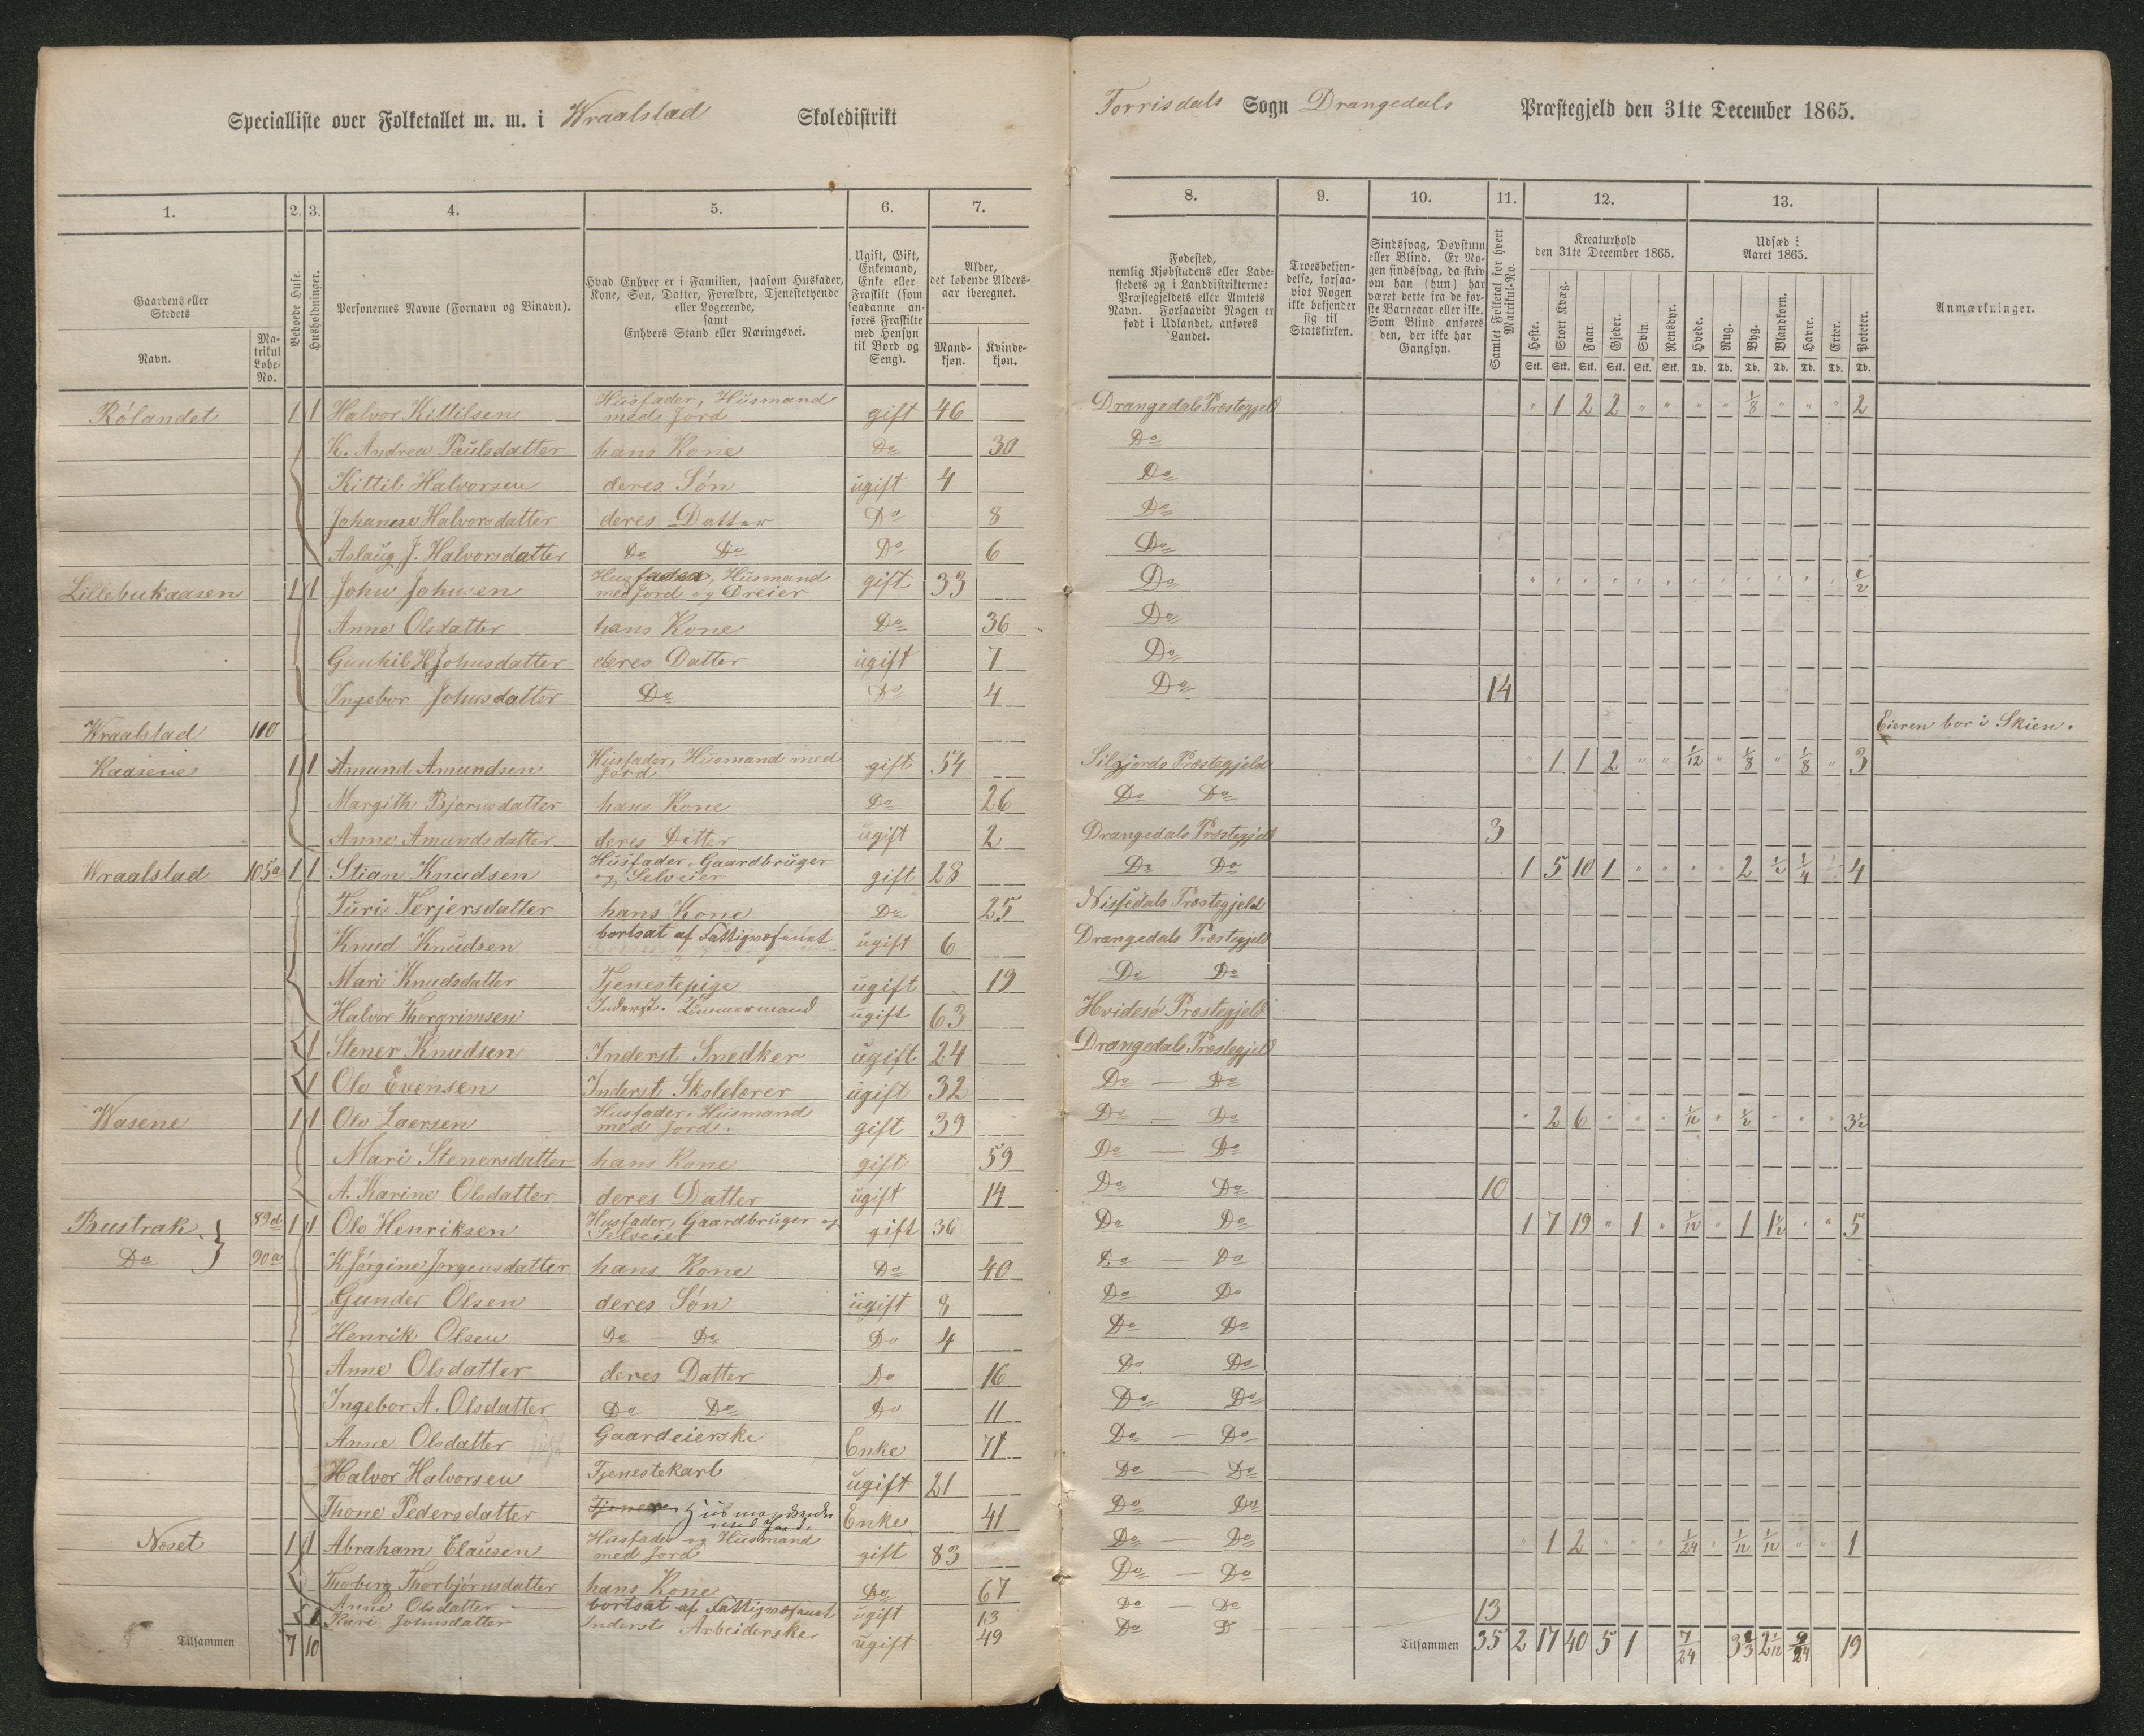 Specialliste over Folketallet m. m. i Wraalstad Skoledistrikt
Torrisdals Sogn Drangedals Præstegjeld den 31te December 1865.
1. 2. 3. 4. 5. 6. 7.
8. 9. 10. 11. 12. 13.
Gaardens eller Stedets
Navn.
Matrikul Løbe-No.
Beboede Huse.
Husholdninger.
Personernes Navne (Fornavn og Binavn).
Hvad Enhver er i Familien, saasom Husfader, Kone, Søn, Datter, Forældre, Tjenestetyende eller Logerende,
samt
Enhvers Stand eller Næringsvei.
Ugift, Gift, Enkemand, Enke eller Fraskilt (som saadanne anføres Fraskilte med Hensyn til Bord og Seng).
Alder, det løbende Alders-aar iberegnet.
Mand-kjøn. Kvinde-kjøn.
Fødested, nemlig Kjøbstadens eller Lade-stedets og i Landdistrikterne: Præstegjeldets eller Amtets Navn. Forsaavidt Nogen er født i Udlandet, anføres Landet.
Troesbekjen-delse, forsaa-vidt Nogen ikke bekjender sig til Statskirken.
Sindssvag, Døvstum eller Blind. Er No-gen sindssvag, da skriv om han (hun) har været dette fra de før-ste Barneaar eller ikke. Som Blind anføres den, der ikke har Gangsyn.
Samlet Folketal for hvert Matrikul-No.
Kreaturhold den 31te December 1865.
Heste. Stort Kvæg. Faar. Gjeder. Svin. Rensdyr.
Stk. Stk. Stk. Stk. Stk. Stk.
Udsæd i Aaret 1865.
Hvede. Rug. Byg. Blandkorn. Havre. Erter. Poteter.
Td. Td. Td. Td. Td. Td. Td.
Anmærkninger.
Rølandet 1 1 Halvor Kittilsen Husfader, Husmand med Jord gift 46 Drangedals Præstegjeld " 1 2 2 " " " " 1/8 " " " 2
K. Andrea Paulsdatter hans Kone Do 30 Do
Kittil Halvorsen deres Søn ugift 4 Do
Johanne Halvorsdatter deres Datter Do 8 Do
Aslaug J. Halvorsdatter Do Do Do 6 Do
Lillebukaasen 1 1 John Johnsen Husfader, Husmand med Jord og Dreier gift 33 Do 1/2
Anne Olsdatter hans Kone Do 36 Do
Gunhil K Johnsdatter deres Datter ugift 7 Do
Ingebor Johnsdatter Do Do 4 Do 14
Wraalstad 110 Eieren bor i Skien.
Kaasene 1 1 Amund Amundsen Husfader, Husmand med Jord gift 54 Siljords Præstegjeld " 1 1 2 " " 1/12 " 1/8 " 1/8 " 3
Margith Bjørnsdatter hans Kone Do 26 Do Do
Anne Amundsdatter deres Datter ugift 2 Drangedals Præstegjeld 3
Wraalstad 105a 1 1 Stian Knudsen Husfader, Gaardbruger og Selveier gift 28 Do Do 1 5 10 1 " " " " 2 1/2 1/4 4
Turi Terjersdatter hans Kone Do 25 Nissedals Præstegjeld
Knud Knudsen bortsat af Fattigvæsenet ugift 6 Drangedals Præstegjeld
Mari Knudsdatter Tjenestepige ugift 19 Do Do
Halvor Thorgrimsen Inderst. Tømmermand ugift 63 Hvidesø Præstegjeld
1 Stener Knudsen Inderst Snedker ugift 24 Drangedals Præstegjeld
1 Ole Evensen Inderst Skolelærer ugift 32 Do — Do
Wasene 1 1 Ole Laersen Husfader, Husmand med Jord. gift 39 Do Do " 2 6 " " " 1/12 " 1/2 " " " 3 1/2
Mari Stenersdatter hans Kone gift 59 Do — Do
A. Karine Olsdatter deres Datter ugift 14 Do Do 10
Bustrak 89d 1 1 Ole Henriksen Husfader, Gaardbruger og Selveier gift 36 Do Do 1 7 19 " 1 " 1/12 " 1 1 1/2 " " 5
Do 90a K Jørgine Jørgensdatter hans Kone Do 40 Do — Do
Gunder Olsen deres Søn ugift 8 Do Do
Henrik Olsen Do — Do Do 4 Do Do
Anne Olsdatter deres Datter Do 16 Do Do
Ingebor A. Olsdatter Do Do Do 11 Do Do
Anne Olsdatter Gaardeierske Enke 71 Do — Do
Halvor Halvorsen Tjenestekarl ugift 21 Do — Do
Thone Pedersdatter Enke 41 Do Do
Noset 1 1 Abraham Clausen Husfader og Husmand med Jord gift 83 Do Do 1 2 1/24 1/12 1/12 " " 1
Thoberg Thorbjørnsdatter hans Kone Do 67 Do — Do
Anne Olsdatter bortsat af Fattigvæsenet ugift 13 Do — Do 13
1 Kari Johnsdatter Inderst Arbeiderske ugift 49 Do D
Tilsammen 7 10 Tilsammen 35 2 17 40 5 1 7/24 2 1/12 9/24 19